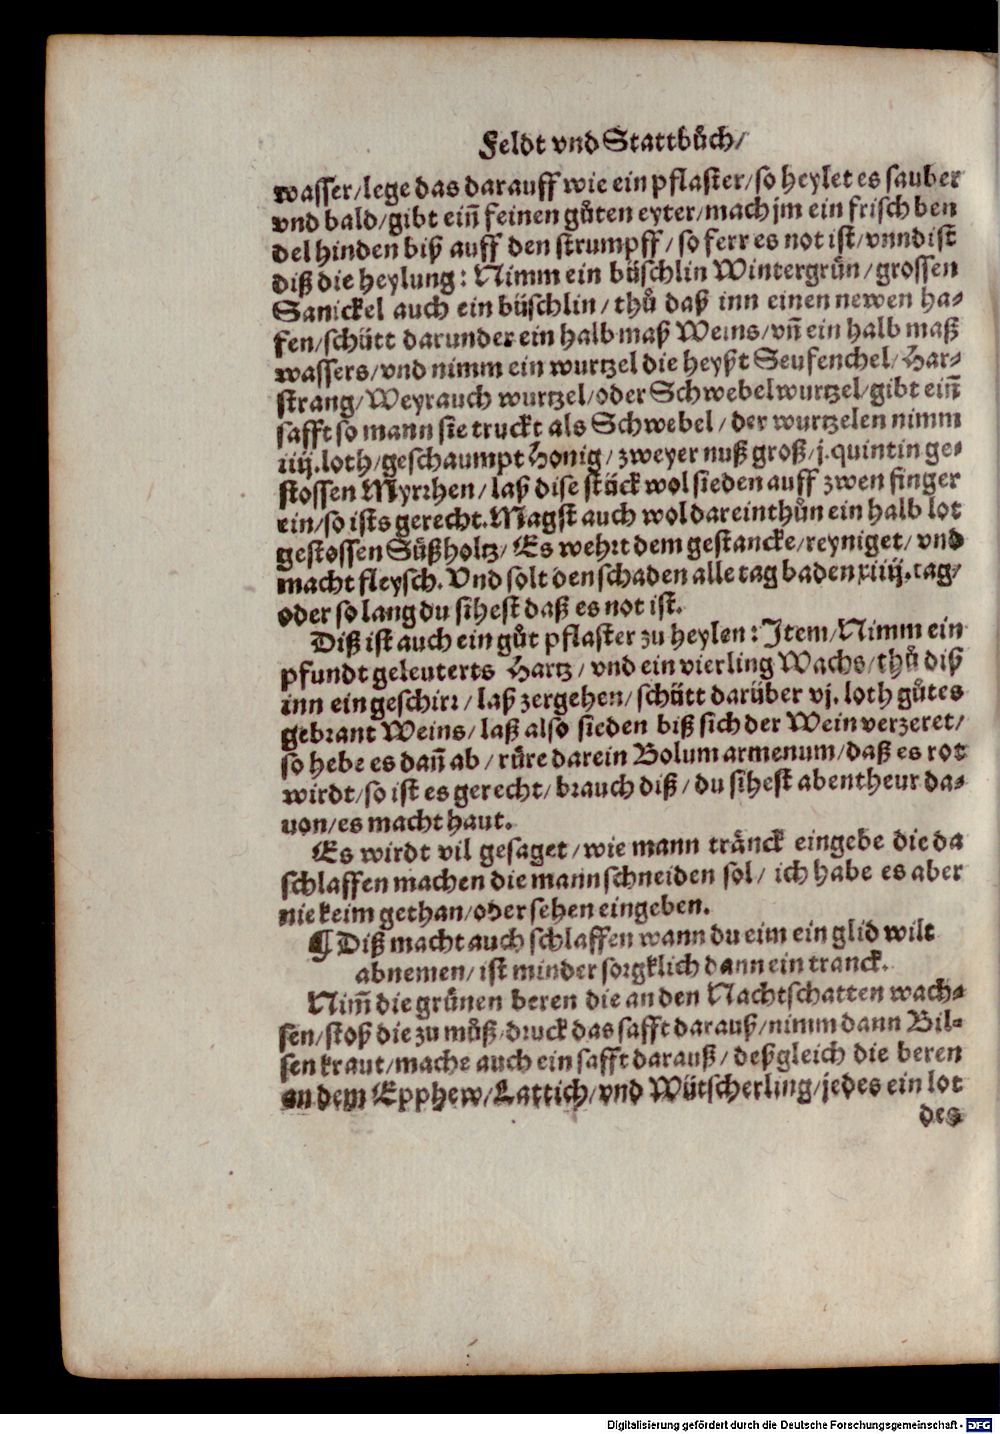 Feldt vnd Stattbůch/
wasser/lege das darauff wie ein pflaster/so heylet es sauber
vnd bald/gibt eiñ feinen gůten eyter/mach jm ein frisch ben
del hinden biß auff den strumpff/so ferr es not ist/vnnd ist
diß die heylung: Nimm ein büschlin Wintergrůn/grossen
Sanickel auch ein büschlin/thů daß inn einen newen ha⸗
fen/schütt darunder ein halb maß Weins/vñ ein halb maß
wassers/vnd nimm ein wurtzel die heyßt Seufenchel/Har⸗
strang/Weyrauch wurtzel/oder Schwebelwurtzel/gibt eiñ
safft so mann sie truckt als Schwebel/der wurtzelen nimm
iiij.loth/geschaumpt Honig/zweyer nuß groß/j.quintin ge⸗
stossen Myrrhen/laß dise stück wol sieden auff zwen finger
ein/so ists gerecht. Magst auch wol darein thůn ein halb lot
gestossen Süßholtz/Es wehrt dem gestancke/reyniget/vnd
macht fleysch. Vnd solt den schaden alle tag baden xiiij.tag/
oder so lang du sihest daß es not ist.
Diß ist auch ein gůt pflaster zu heylen: Item/Nimm ein
pfundt geleuterts Hartz/vnd ein vierling Wachs/thů diß
inn ein geschirr/laß zergehen/schütt darüber vj.loth gůtes
gebrant Weins/laß also sieden biß sich der Wein verzeret/
so hebe es dañ ab/růre darein Bolum armenum/daß es rot
wirdt/so ist es gerecht/brauch diß/du sihest abentheur da⸗
uon/es macht haut.
Es wirdt vil gesaget/wie mann tränck eingebe die da
schlaffen machen die mann schneiden sol/ich habe es aber
nie keim gethan/oder sehen eingeben.
¶ Diß macht auch schlaffen wann du eim ein glid wilt
abnemen/ist minder sorgklich dann ein tranck.
Nim̃ die grůnen beren die an den Nachtschatten wach⸗
sen/stoß die zu můß/druck das safft darauß/nimm dann Bil⸗
sen kraut/mache auch ein safft darauß/deßgleich die beren
an dem Epphew/Lattich/vnd Wůtscherling/jedes ein lot
des
Digitalisierung gefördert durch die Deutsche Forschungsgemeinschaft - DFG